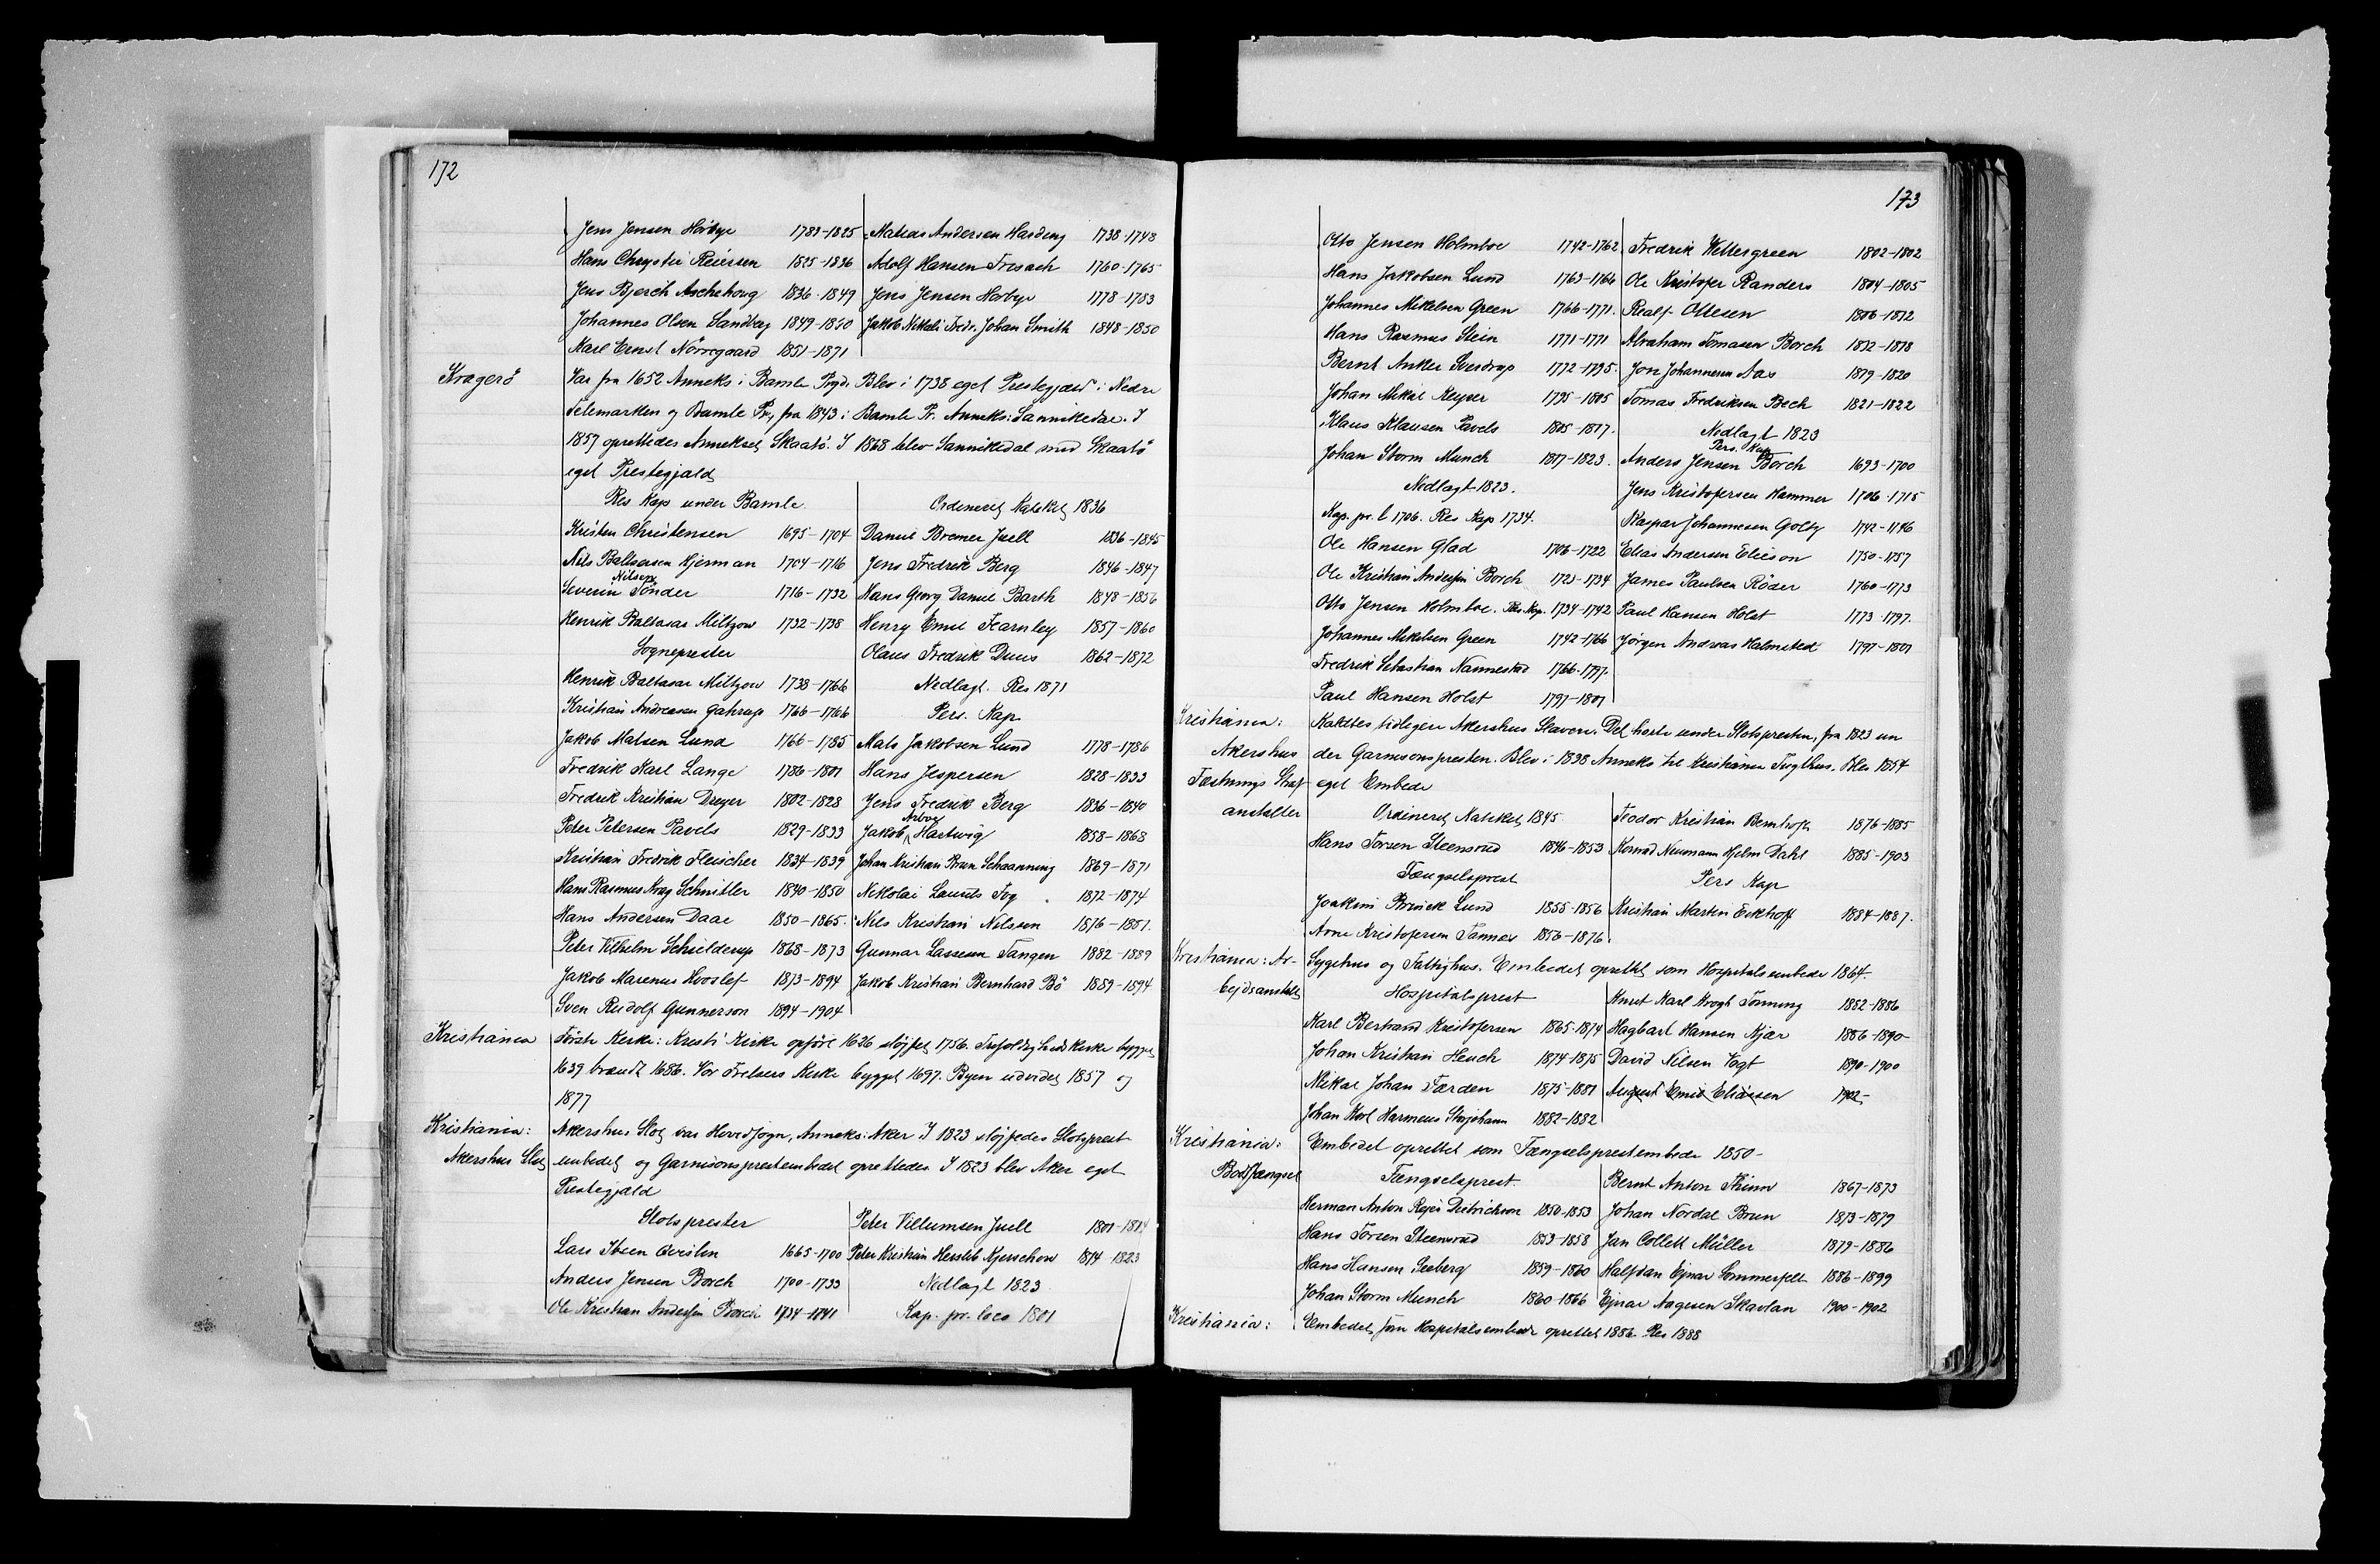 172
Jens Jensen Hörbye 1783-1825 Matias Andersen Harding 1738-1748
Hans Chryster Reiersen 1825-1836 Adolf Hansen Fresach 1760-1765
Jens Bjerch Aschehoug 1836-1849 Jens Jensen Hörbye 1778-1783
Johannes Olsen Sandberg 1849-1850 Jakob Nikolai Fredr. Johan Smith 1848-1850
Karl Ernst Nörregaard 1851-1871
Kragerö Var fra 1652 Anneks i Bamle Prgd. Blev i 1738 eget Prestegjæld i Nedre
Telemarken og Bamle Pr, fra 1843 i Bamle Pr. Anneks: Sannikedal. I
1857 oprettedes Annekset Skaatö. I 1868 blev Sannikedal med Skaatö
eget Prestegjæld
Res Kap under Bamle Ordineret Kateket 1836
Kristen Christensen 1695-1704 Daniel Bremer Juell 1836-1845
Nils Baltsersen Hjerman 1704-1716 Jens Fredrik Berg 1846-1847
Severin Nilsen Tönder 1716-1732 Hans Georg Daniel Barth 1848-1856
Henrik Baltasar Miltzow 1732-1738 Henry Emil Fearnley 1857-1860
Sogneprester Olaus Fredrik Duus 1862-1872
Henrik Baltasar Miltzow 1738-1766 Nedlagt. Res 1871
Kristian Andreasen Gahrup 1766-1766 Pers. Kap
Jakob Matsen Lund 1766-1785 Mats Jakobsen Lund 1778-1786
Fredrik Karl Lange 1786-1801 Hans Jespersen 1828-1833
Fredrik Kristian Dreyer 1802-1828 Jens Fredrik Berg 1836-1840
Peter Petersen Pavels 1829-1833 Jakob Arboe Hartwig 1858-1868
Kristian Fredrik Fleischer 1834-1839 Johan Kristian Brun Schaanning 1869-1871
Hans Rasmus Krag Schnitler 1840-1850 Nikolai Laurits Fog 1872-1874
Hans Andersen Daae 1850-1865. Nils Kristian Nilssen 1876-1881.
Peter Vilhelm Schjelderup 1868-1873 Gunnar Lassesen Tangen 1882-1889
Jakob Marenus Hvoslef 1873-1894 Jakob Kristian Bernhard Bö 1889-1894
Sven Rudolf Gunnerson 1894-1904
Kristiania Förste Kirke: Kristi Kirke opfört 1626 slöjfet 1756. Trefoldigheds Kirke bygget
1639 brændt 1686. Vor Frelsers Kirke bygget 1697. Byen udvidet 1857 og
1877
Kristiania: Akershus Slot var Hovedsogn, Anneks: Aker I 1823 slöjfedes Slotsprest
Akershus Slot embedet og Garnisonsprestembedet oprettedes. I 1823 blev Aker eget
Prestegjæld
Slotsprester Peter Villumsen Juell 1801-1814
Lars Ibsen 1665-1700 Peter Kristian Hersleb Kjerschow 1814-1823
Anders Jensen Borch 1700-1733 Nedlagt 1823
Ole Kristian Andersen Borch 1734-1741 Kap. pr. loco 1801
173
Otto Jensen Holmboe 1742-1762 Fredrik Wettergreen 1802-1802
Hans Jakobsen Lund 1763-1766 Ole Kristofer Randers 1804-1805
Johannes Mikelsen Green 1766-1771. Realf Ottesen 1806-1812
Hans Rasmus Stein 1771-1771 Abraham Tomasen Borch 1812-1818
Bernt Anker Sverdrup 1772-1795. Jon Johannesen Aas 1819-1820
Johan Mikal Keyser 1795-1805 Tomas Fredriksen Bech 1821-1822
Klaus Klausen Pavels 1805-1817. Nedlagt 1823
Pers. Kap
Johan Storm Munch 1817-1823. Anders Jensen Borch 1693-1700
Nedlagt 1823. Jens Kristofersen Hammer 1706-1715
Kap. pr. l 1706. Res Kap 1734. Kaspar Johannesen Golty 1742-1746
Ole Hansen Glad 1706-1722 Elias Andersen Elieson 1750-1757
Ole Kristian Andersen Borch 1723-1734 James Paulsen Röder 1760-1773
Otto Jensen Holmboe. Res Kap. 1734-1742 Paul Hansen Holst 1773-1797.
Johannes Mikelsen Green 1742-1766 Jörgen Andreas Halmsted 1797-1801
Fredrik Sebastian Nannestad 1766-1797.
Paul Hansen Holst 1797-1801
Kristiania: Kaldtes tidligere Akershus Slaveri. Det hörte under Slotspresten, fra 1823 un
Akershus der Garnisonspresten. Blev i 1838 Anneks til Kristiania Tugthus. Blev 1854
Fæstnings Straf eget Embede
anstalter Ordineret Kateket 1845 Teodor Kristian Bernhoft 1876-1885
Hans Torsen Steensrud 1846-1853 Konrad Neumann Hjelm Dahl 1885-1903
Fængselsprest Pers Kap
Joakim Brinck Lund 1855-1856 Kristian Martin Eckhoff 1884-1887.
Arne Kristofersen Tanner 1856-1876.
Kristiania: Ar- Sygehus og Fattighus. Embedet oprettet som Hospitalsembede 1864.
bejdsanstalt Hospitalsprest Knut Karl Krogh Tonning 1882-1886
Karl Bertrand Kristofersen 1865-1874 Hagbart Hansen Kjær 1886-1890
Johan Kristian Heuch 1874-1875 David Nilsen Vogt 1890-1900
Mikal Johan Færden 1875-1881 August Emil Eliassen 1902-
Johan Karl Harmens Storjohann 1882-1882
Kristiania: Embedet oprettet som Fængselsprestembede 1850-
Bodsfængsel Fængselsprest. Bernt Anton Thinn 1867-1873
Herman Anton Rejer Dietrichson 1850-1853 Johan Nordal Brun 1873-1879
Hans Torsen Steensrud 1853-1858 Jan Collett Müller 1879-1886
Hans Hansen Seeberg 1859-1860 Halfdan Ejnar Sommerfelt 1886-1899
Johan Storm Munch 1860-1866 Ejnar Aagesen Skavlan 1900-1902
Kristiania: Embedet som Hospitalsembede oprettet 1886. Res 1888